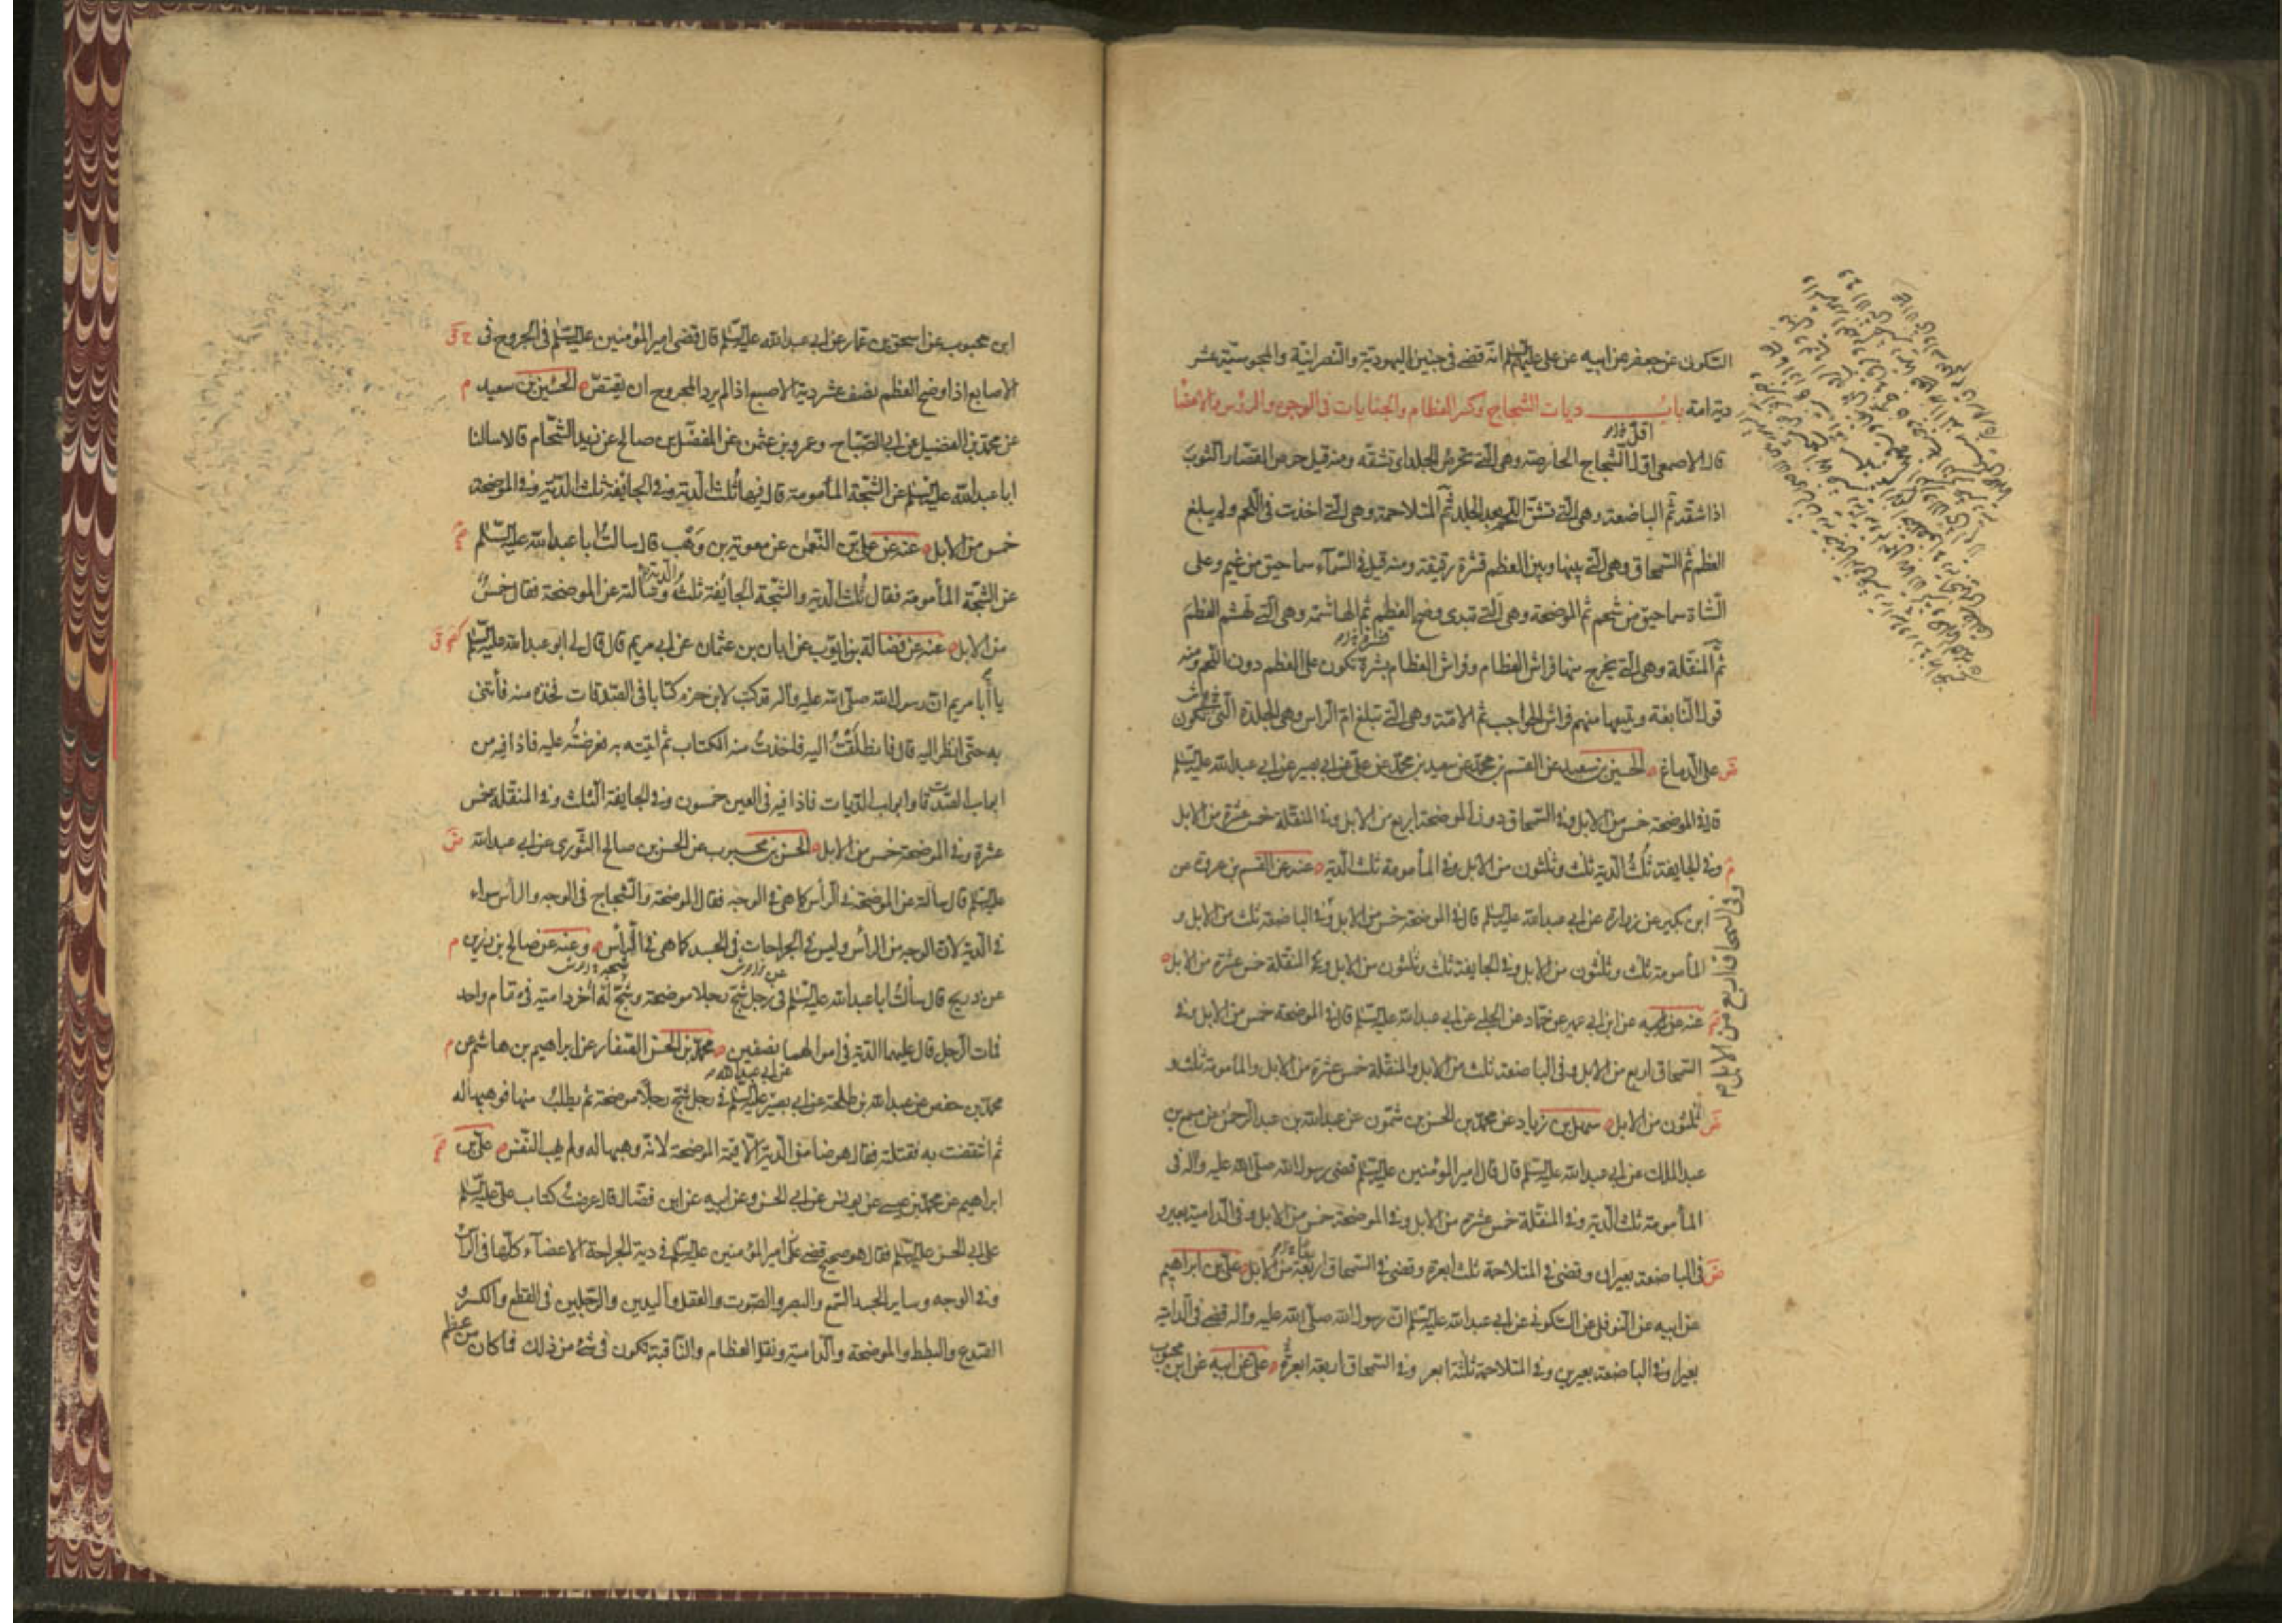 السكونى عن جعفر عن ابيه عن على عليهم السلم انه قضى فى جنين اليهودية والنصرانية والمجوسية عشر
دية امه باب ديات الشجاج وكسر العظام والجنايات فى الوجوه والرؤس والاعضا
قال الاصمعى اول الشجاج الحارصة وهى التى تحرص الجلد اى تشقه ومنه قيل حرص القصار الثوب
اذا شقه ثم الباضعة وهى التى تشق اللحم بعد الجلد ثم المتلاحمة وهى التى اخذت فى اللحم ولم يبلغ
العظم ثم السمحاق وهى التى بينها وبين العظم قشرة رقيقة ومنه قيل فى السماء سماحيق من غيم وعلى
الشاة سماحيق من شحم ثم الموضحة وهى التى تبدى وضح العظم ثم الهاشمة وهى التى تهشم العظم
ثم المنقلة وهى التى يخرج منها فراش العظام وفراش العظام بشرة تكون على العظم دون اللحم ومنه
قول النابغة ويتبعها منهم فراش الحواجب ثم الامة وهى التى تبلغ ام الراس وهى الجلدة التى تكون
على الدماغ الحسين بن سعيد عن القسم بن محمد عن سعيد بن محمد عن على عن ابى بصير عن ابى عبد الله عليه السلم
قال فى الموضحة خمس من الابل وفى السمحاق دون الموضحة اربع من الابل وفى المنقلة خمس عشرة من الابل
وفى الجايفة ثلث الدية ثلث وثلثون من الابل وفى المأمومة ثلث الدية عنه عن القسم بن عروة عن
ابن بكير عن زرارة عن ابى عبد الله عليه السلم قال فى الموضحة خمس من الابل وفى الباضعة ثلث من الابل و
وفى السمحاق اربع من الابل
المأمومة ثلث وثلثون من الابل وفى الجايفة ثلث وثلثون من الابل وفى المنقلة خمس عشرة من الابل
عنه عن ابن ابى عمير عن حماد عن الحلبى عن ابى عبد الله عليه السلم قال فى الموضحة خمس من الابل وفى
السمحاق اربع من الابل وفى الباضعة ثلث من الابل والمنقلة خمس عشرة من الابل والمأمومة ثلث و
ثلثون من الابل سهل بن زياد عن محمد بن الحسن بن شمون عن عبد الله بن عبد الرحمن عن مسمع بن
عبد الملك عن ابى عبد الله عليه السلم قال قال امير المؤمنين عليه السلم قضى رسول الله صلى الله عليه وآله فى
المأمومة ثلث الدية وفى المنقلة خمس عشرة من الابل وفى الموضحة خمس من الابل وفى الدامية بعير و
فى الباضعة بعيران وقضى فى المتلاحمة ثلث ابعرة وقضى فى السمحاق اربعة من الابل على بن ابراهيم
عن ابيه عن النوفلى عن السكونى عن ابى عبد الله عليه السلم ان رسول الله صلى الله عليه وآله قضى فى الدامية
بعيرا وفى الباضعة بعيرين وفى المتلاحمة ثلثة ابعر وفى السمحاق اربعة ابعرة على عن ابيه عن ابن محبوب
ابن محبوب عن اسحق بن عمار عن ابى عبد الله عليه السلم قال قضى امير المؤمنين عليه السلم فى الجروح فى
الاصابع اذا اوضح العظم نصف عشر دية الاصبع اذا لم يرد المجروح ان يقتص الحسين بن سعيد
عن محمد بن الفضيل عن ابى الصباح وعمرو بن عثمن عن المفضل بن صالح عن زيد الشحام قالا سالنا
ابا عبد الله عليه السلم عن الشجة المأمومة قال فيها ثلث الدية وفى الجايفة ثلث الدية وفى الموضحة
خمس من الابل عنه عن على بن النعمن عن معوية بن وهب قال سالت ابا عبد الله عليه السلم
عن الشجة المأمومة فقال ثلث الدية والشجة الجايفة ثلث الدية وسالته عن الموضحة فقال خمس
من الابل عنه عن فضالة بن ايوب عن ابان بن عثمان عن ابى مريم قال قال لى ابو عبد الله عليه السلم
يا أبا مريم ان رسول الله صلى الله عليه وآله قد كتب لابن حزم كتابا فى الصدقات فخذه منه فأتنى
به حتى انظر اليه قال فانطلقت اليه فاخذت منه الكتاب ثم اتيته به فعرضته عليه فاذا فيه من
ابواب الصدقات وابواب الديات فاذا فيه فى العين خمسون وفى الجايفة الثلث وفى المنقلة خمس
عشرة وفى الموضحة خمس من الابل الحسن بن محبوب عن الحسن بن صالح الثورى عن ابى عبد الله
عليه السلم قال سالته عن الموضحة فى الرأس كما هى فى الوجه فقال الموضحة والشجاج فى الوجه والرأس سواء
فى الدية لان الوجه من الرأس وليس فى الجراحات فى الجسد كما هى فى الرأس وعنه عن صالح بن رزين
عن ذريح قال سألت ابا عبد الله عليه السلم فى رجل شج رجلا موضحة وشجه آخر دامية فى مقام واحد
فمات الرجل قال عليهما الدية فى اموالهما نصفين محمد بن الحسن الصفار عن ابراهيم بن هاشم عن
محمد بن حفص عن عبد الله بن طلحة عن ابى بصير عن ابى عبد الله عليه السلم فى رجل شج رجلا موضحة ثم يطلب منها فوهبها له
ثم انتقضت به فقتلته فقال هو ضامن الدية الا قيمة الموضحة لانه وهبها له ولم يهب النفس على بن
ابراهيم عن محمد بن عيسى عن يونس عن ابى الحسن وعن ابيه عن ابن فضال قال عرضت كتاب على عليه السلم
على ابى الحسن عليه السلم فقال هو صحيح قضى امير المؤمنين عليه السلم فى دية الجراحة الاعضاء كلها فى الرأس
وفى الوجه وساير الجسد السمع والبصر والصوت والعقل واليدين والرجلين فى القطع والكسر و
الصدع والبطط والموضحة والدامية ونقل العظام والناقبة تكون فى شئ من ذلك فما كان من عظم